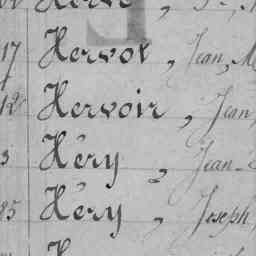 17 Hervot, Jean, M
12 Hervoir, Jean
3 Héry, Jean-
85 Héry, Joseph,